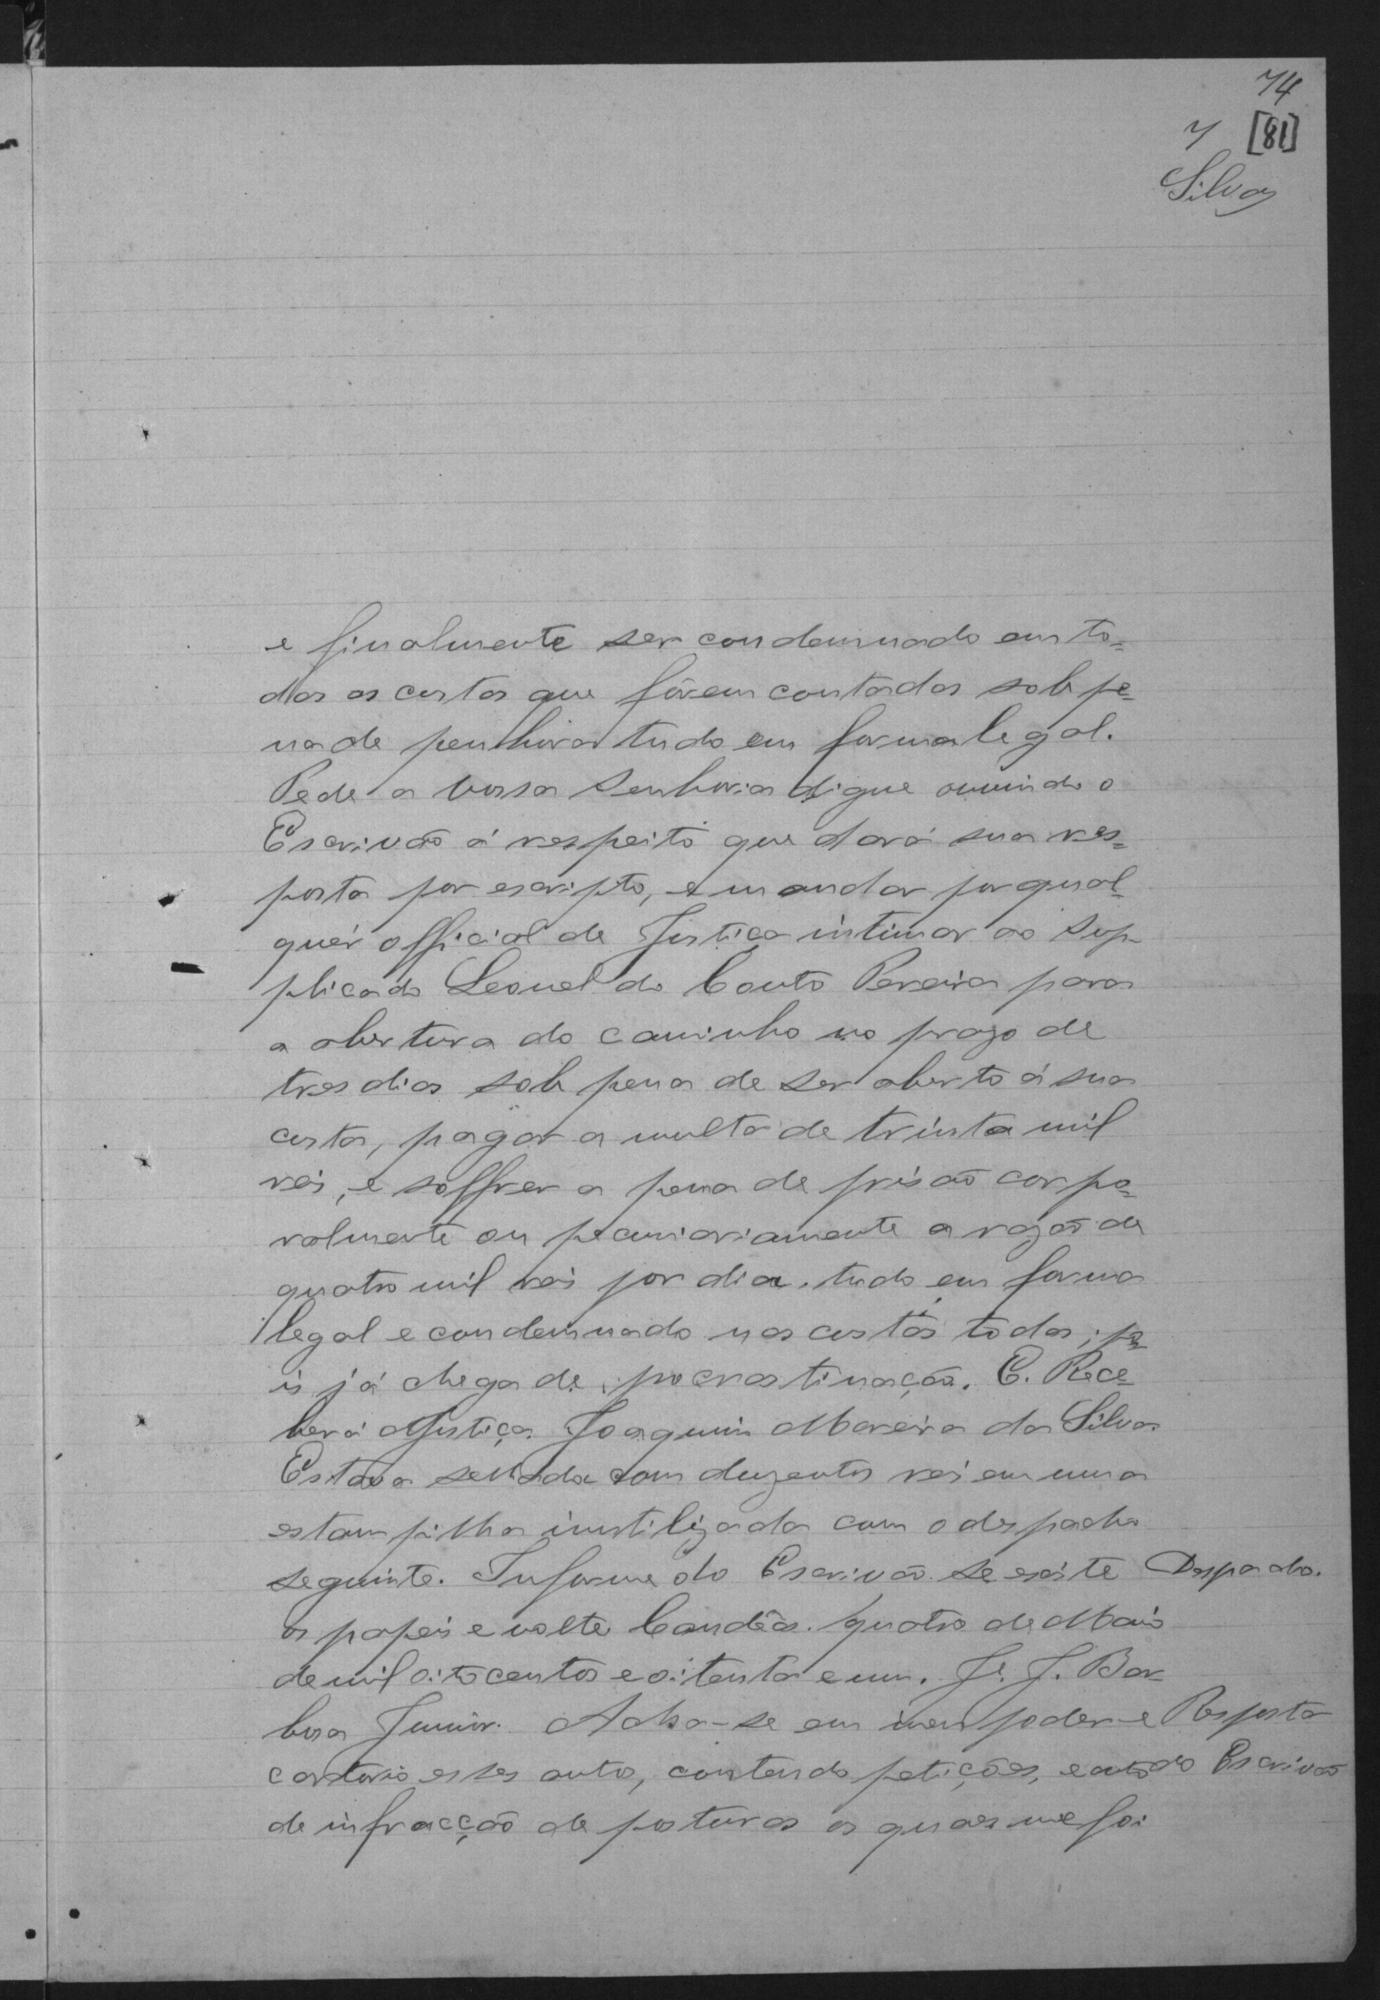 74
7 [81]
Silva
e finalmente ser condemnado em to=
das as custas que fôrem contadas sob pe=
na de penhora tudo em forma legal.
Pede a Vossa Senhoria digne ouvindo o
Escrivão á respeito que dará sua res=
posta por escripto, e mandar por qual=
quér official de Justiça intimar ao Sup-
plicado Leonel do Couto Pereira para
a abertura do caminho no prazo de
tres dias sob pena de ser aberto á sua
custa, pagar a multa de trinta mil
reis, e soffrer a pena de prisão corpo=
ralmente ou pecuniariamente a razão de
quatro mil reis por dia, tudo em forma
legal e condemnado nas custas todas, po
is já chega de procrastinação. E. Rece=
berá Justiça. Joaquim Moreira da Silva.
Estava sellada com duzentos reis em uma
estampilha inutilizada com o despacho
seguinte. Informe do Escrivão se existe
Despacho.
os papeis e volte Candêas. quatro de Maio
de mil oitocentos e oitenta e um. J. J. Bar-
bosa Junior. Acha-se em meu poder e
Resposta
cartorio esses autos, contendo petições, e auto
do Escrivão
de infracção de posturas os quaes me foi